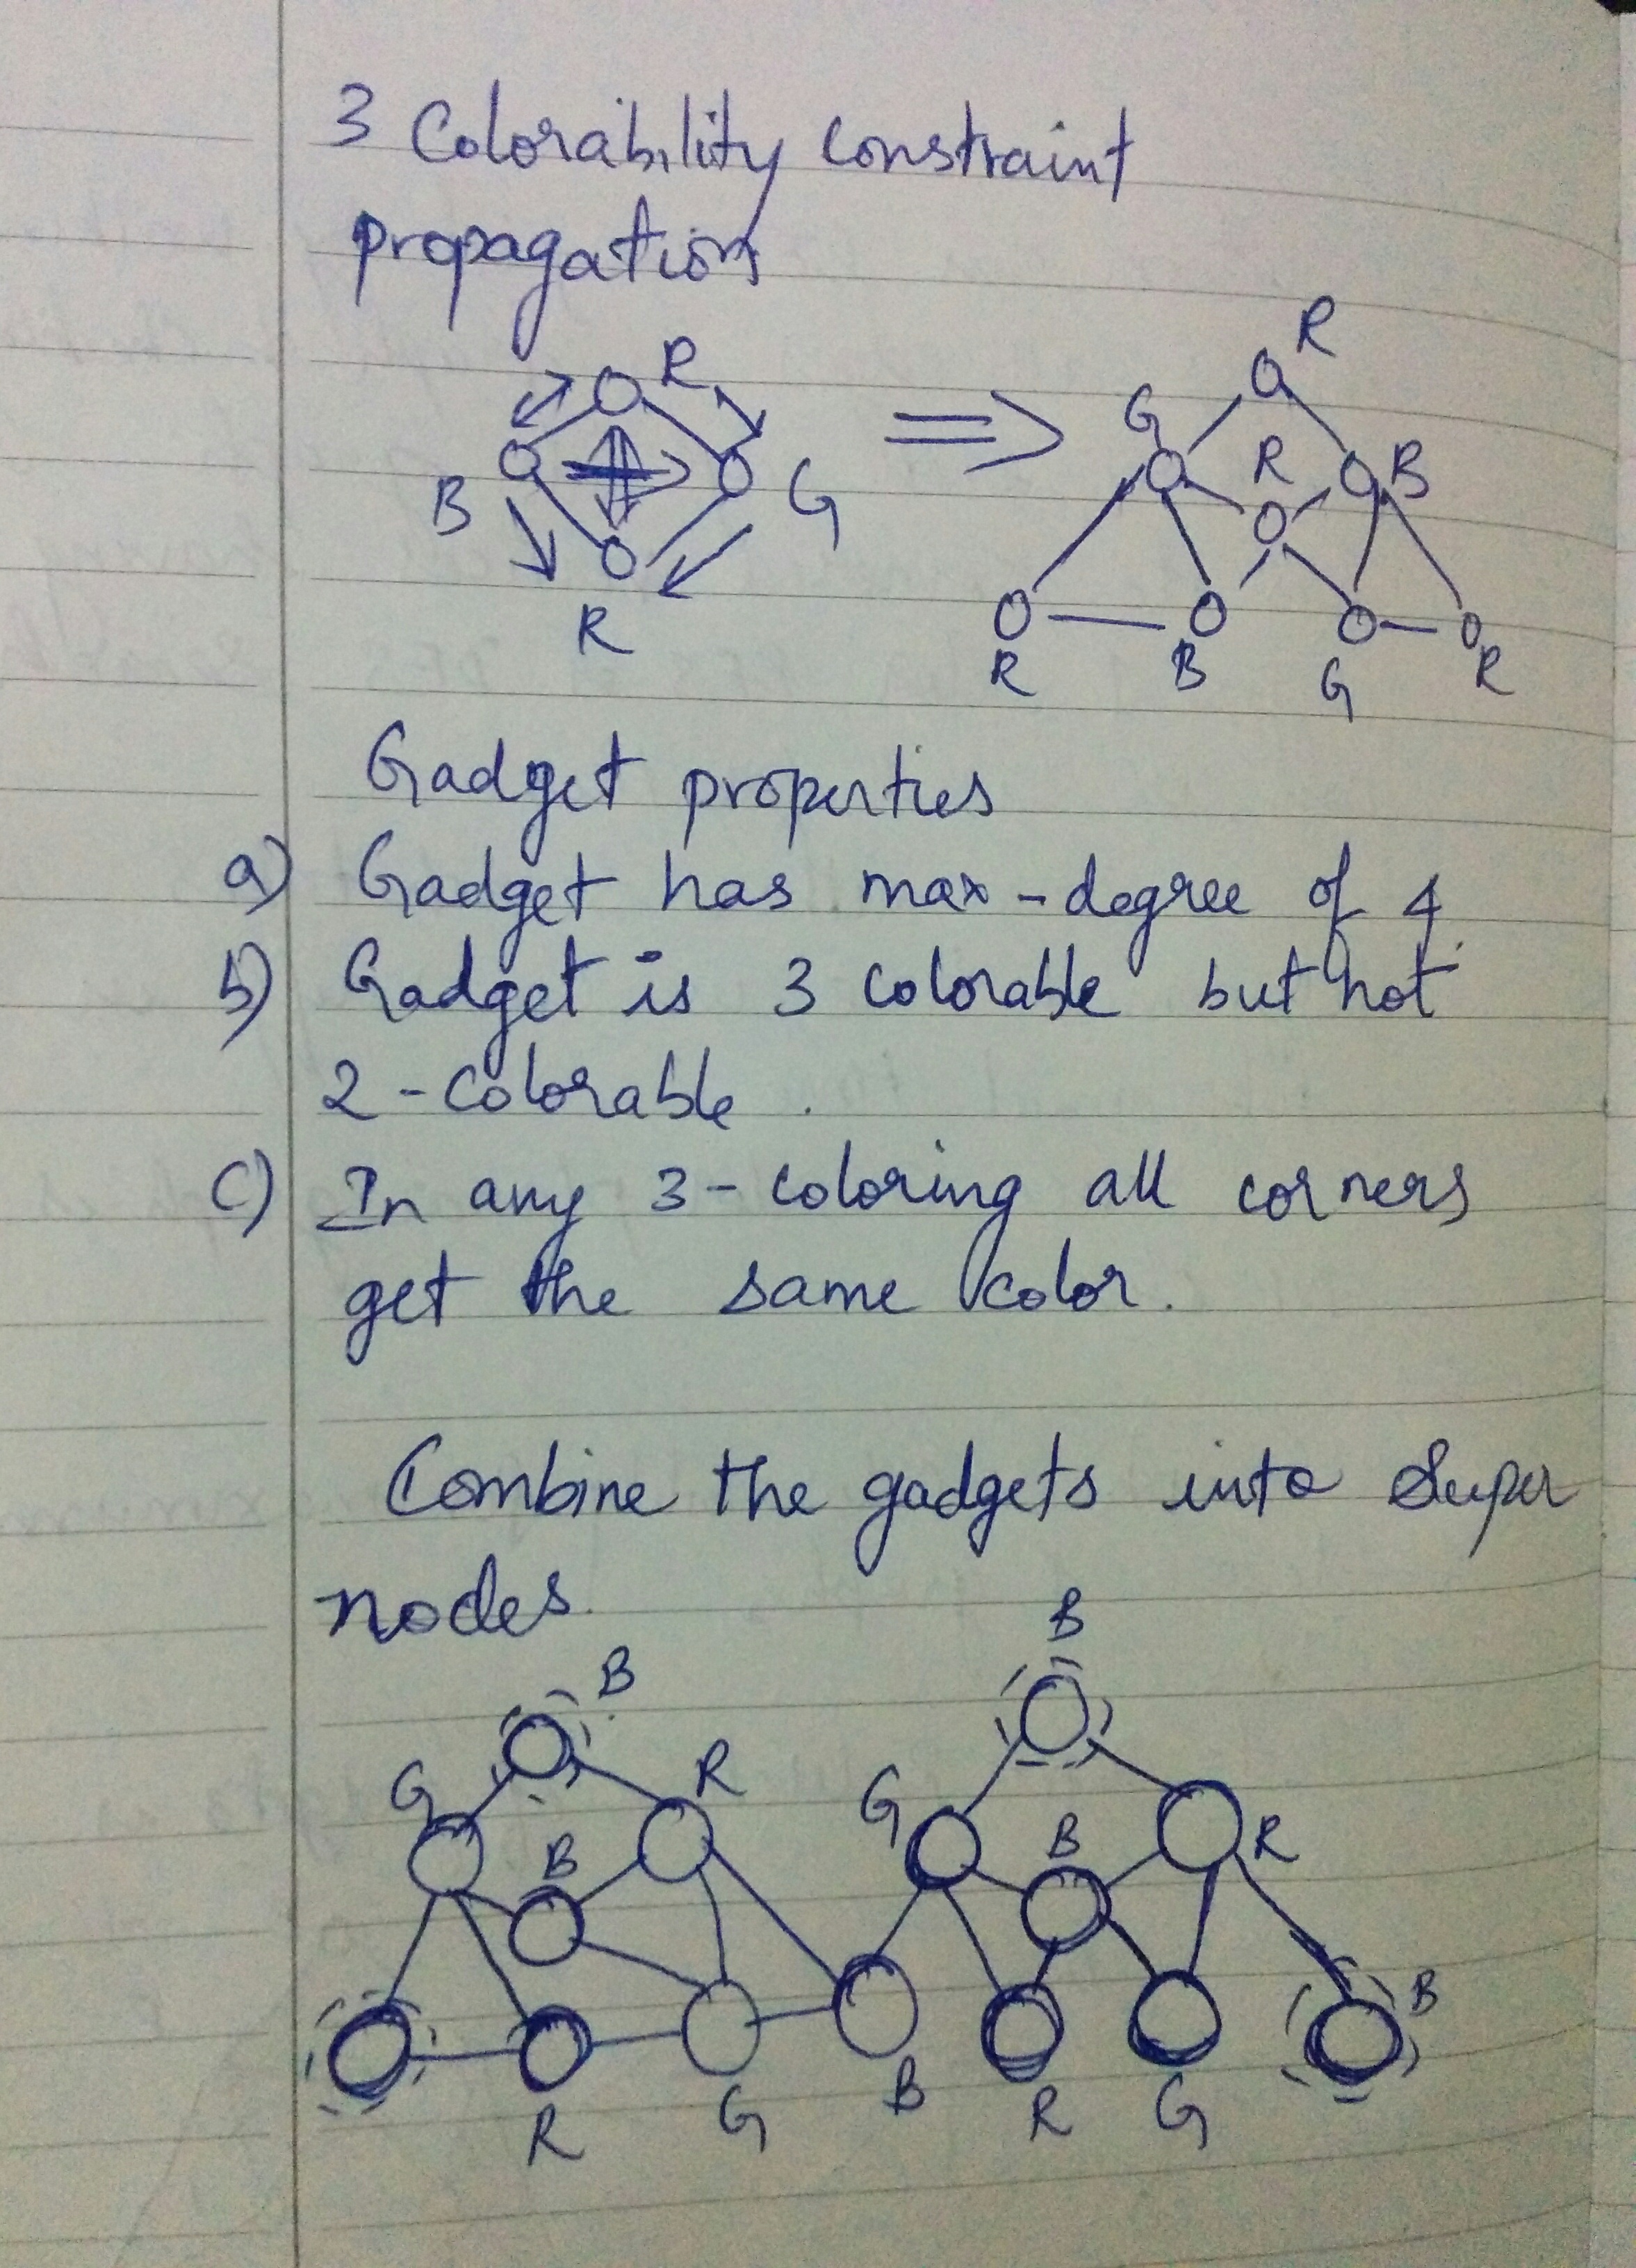 3 Colorability constraint
propagation
R
B
G
R
R
G
R
B
R
B
G
R
Gadget properties
a) Gadget has max-degree of 4
b) Gadget is 3 colorable but not
2-colorable.
c) In any 3-coloring all corners
get the same color.
Combine the gadgets into Super
nodes.
B
G
R
B
R
G
B
B
G
B
R
R
G
B